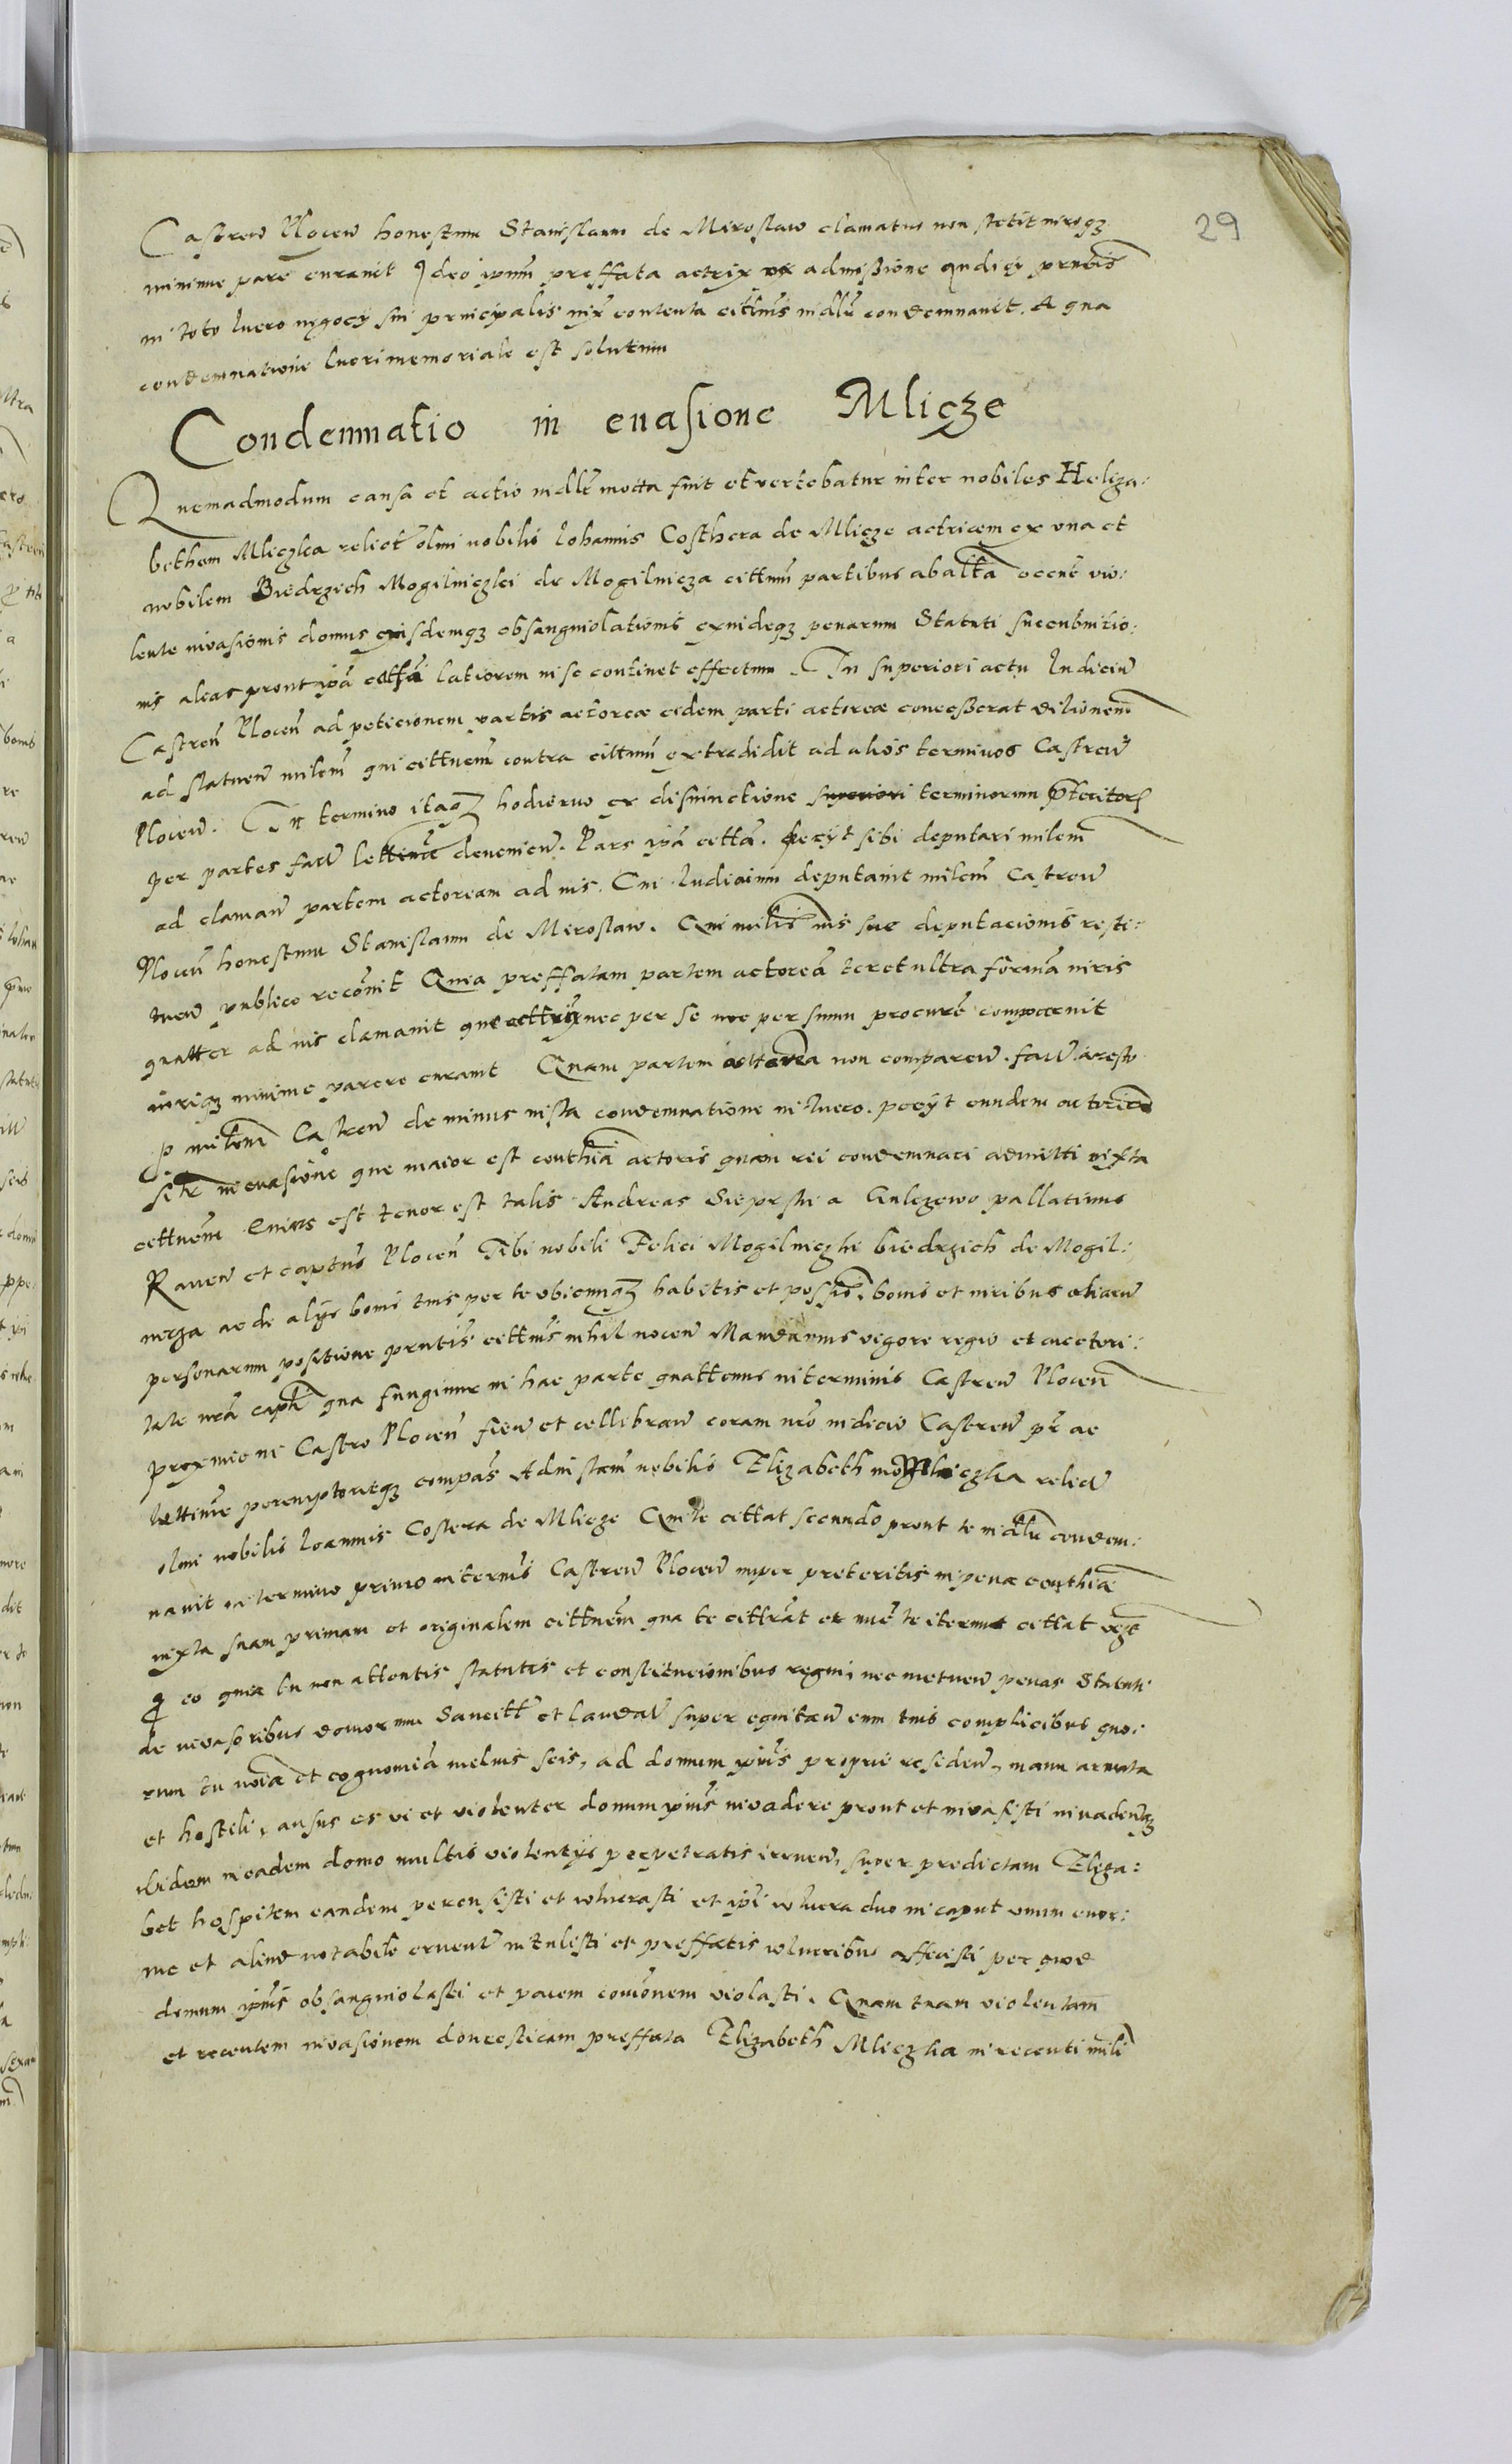 29
Castren Plocen honestum Stanislaum de Miroslaw clamatus non stetit iuriqz
minime parere curavit Ideo ipsum preffata actrix ex admissione iudicij pntis
in toto lucro negocij sui principalis iuxta contenta cittnis iudlr condemnavit. A qua
condemnatione lucri memoriale est solutum
Condemnatio in evasione Mlicze
Quemadmodum causa et actio iudlr motta fuit et vertebatur inter nobiles Heliza:
betham Mliczka relict olim nobilis Iohannis Costhera de Mlicze actricem ex una et
nobilem Biedrzich Mogilniczki de Mogilnicza cittum partibus ab altra occne vio:
lente invasionis domus eiusdemqz obsangviolationis exindeqz penarum Statuti succubuitio:
nis aleas prout ipa citta latiorem in se continet effectum. In superiori actu Iudicium
Castren Plocen ad peticionem partis actoreae eidem parti actoreae concesserat dilionem
ad statuen milem qui cittnem contra cittum extradidit ad alios terminos Castren
Plocen. In termino itaqz hodierno ex disiunctione superiori terminorum preteritor
per partes fact lettime devenien. Pars ipa citta. petijt sibi deputari milem
ad claman partem actoream ad ius. Cui Iudicium deputavit milem Castren
Plocen honestum Stanislaum de Miroslaw. Qui miles ius sue deputacionis resti:
tuen publice recovit Quia preffatam partem actorea ter et ultra forma iuris
quatter ad ius clamavit que actrix nec per se nec per suum procure comparuit
iuriqz minime parere curavit Quam partem actorea non comparen. fact aresto
p milem Castren de minus iusta condemnatione in lucro. petijt eundem actrice
in evasione que maior est conthia actoris quam rei condemnaci admitti iuxta
cittnem Cuius est tenor est talis Andreas Sieprski a Gulczewo pallatinus
Raven et captus Plocen Tibi nobili Felici Mogilniczki biedrzich de Mogil:
nicza ac de alijs bonis tuis per te ubicunqz habitis et possis. bonis et iuribus aliarum
personarum positione pntis cittnis nihil nocen Mandamus vigore regio et auctori:
tate nra captli qua fungimur in hac parte quattenus in terminis Castren Plocen
proxime in Castro Plocen fien et cellibran coram nro iudicio Castren pr ac
lettime peremptorieqz compas Ad instam nobilis Elizabeth Mliczka relict
olim nobilis Ioannis Costera de Mlicze Que te cittat secundo prout te iudlr condem:
navit in termino primo in termis Castren Plocen nuper preteritis in pena conthia
iuxta suam primam et originalem cittnem qua te cittrat et nunc te iterum cittat
p eo quia tu non attentis statutis et constitucionibus regni nec metuen penas Statuti
de invasoribus domorum Sancitt et laudat super equitan cum tuis complicibus quo:
rum tu noia et cognomia melius scis, ad domum ipius proprie residen, manu armata
et hostili, ausus es vi et violenter domum ipius invadere prout et invasisti invadenqz
ibidem in eadem domo multis violentijs perpetratis irruen, super predictam Eliza:
bet hospitem eandem percussisti et vlnerasti et ipi vlnera duo in caput unum enor:
me et aliud notabile cruent intulisti et preffatis vlneribus affecisti per qvod
domum ipius obsangviolasti et pacem comonem violasti. Quam tuam violentam
et recentem invasionem domesticam preffata Elizabeth Mliczka in recenti mili